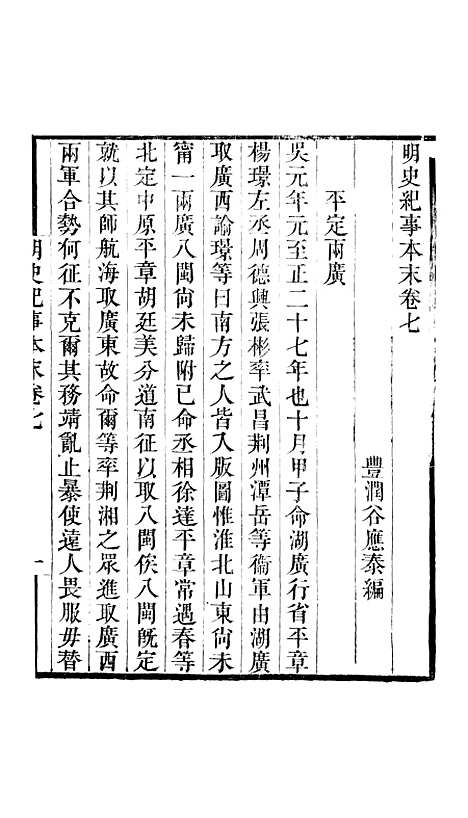 明史紀事本末卷七
豐潤谷應泰編
平定兩廣
吳元年元至正二十七年也十月甲子命湖廣行省平章
楊璟左丞周德興張彬率武昌荆州潭岳等衞軍由湖廣
取廣西諭璟等曰南方之人皆入版圖惟淮北山東尙未
甯一兩廣八閩尙未歸附已命丞相徐達平章常遇春等
北定中原平章胡廷美分道南征以取八閩俟八閩旣定
就以其師航海取廣東故命爾等率荆湘之眾進取廣西
兩軍合勢何征不克爾其務靖亂止暴使遠人畏服毋替
明史紀事本末卷七
一